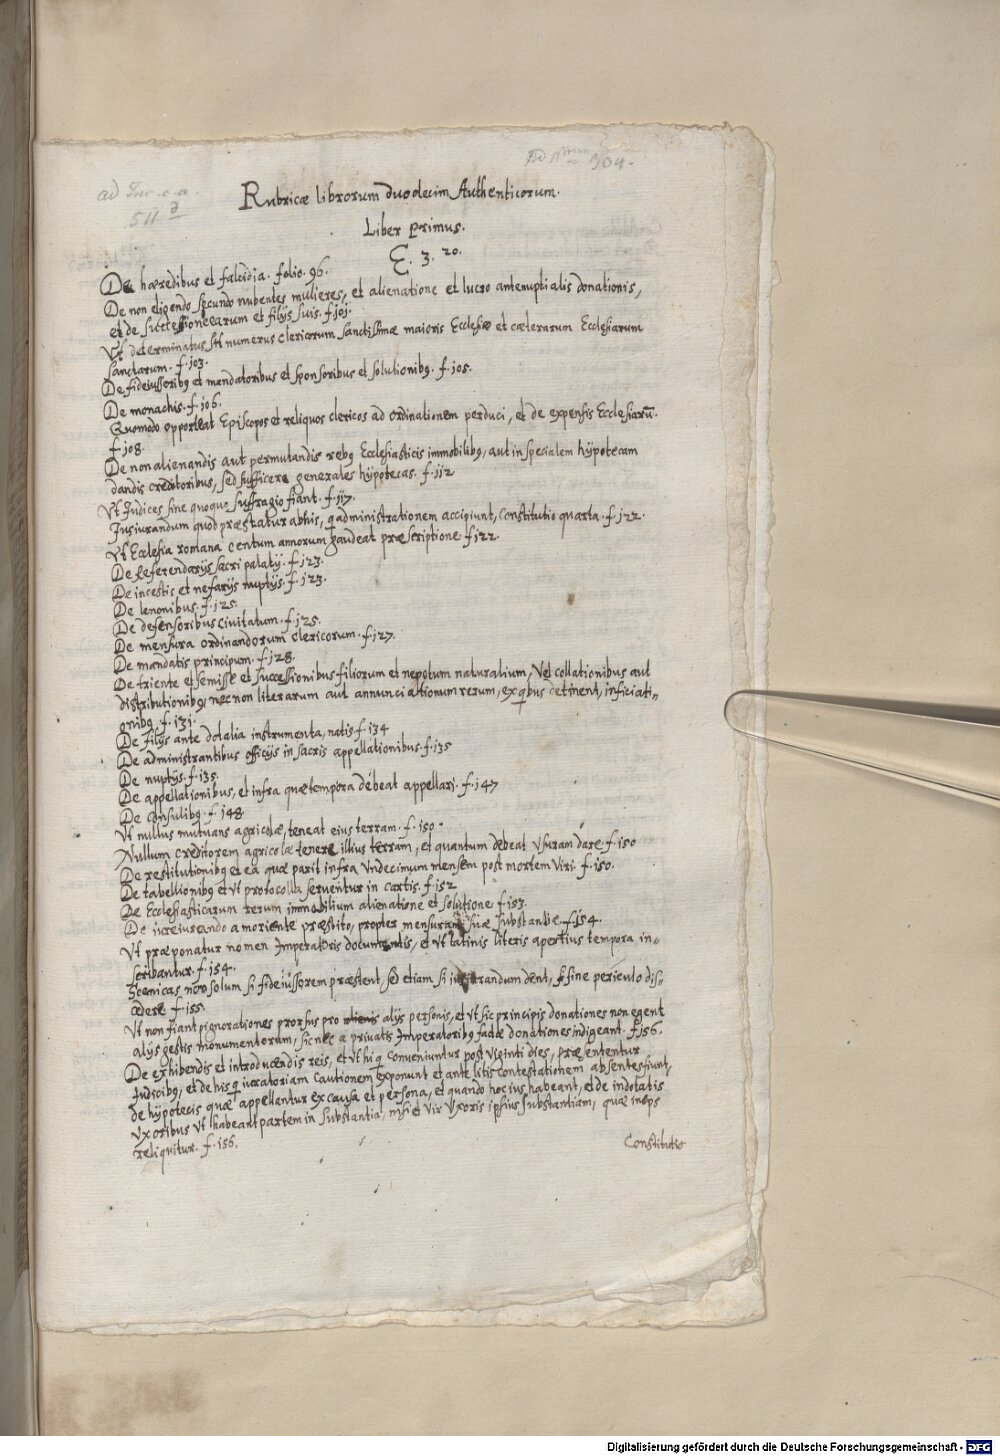 ad Inc. c. a.
511 d
904.
Rubricæ librorum duodecim Authenticorum.
Liber primus.
E. 3. 20.
De hæredibus et falcidia. folio. 96.
De non eligendo secundo nubentes mulieres, et alienatione et lucro antenuptialis donationis,
et de successione earum et filijs suis. f. 101.
Vt determinatus sit numerus clericorum sanctissimæ maioris Ecclesiæ et cæterarum Ecclesiarum
sanctarum. f. 103.
De fideiussoribꝰ et mandatoribus et sponsoribus et solutionibꝰ. f. 105.
De monachis. f. 106.
Quomodo opporteat Episcopos et reliquos clericos ad ordinationem perduci, et de expensis Ecclesiarū.
f. 108.
De non alienandis aut permutandis rebꝰ Ecclesiasticis immobilibꝰ, aut in specialem hÿpotecam
dandis creditoribus, sed sufficere generales hÿpotecas. f. 112
Vt Iudices sine quoquo suffragio fiant. f. 117.
Iusiurandum quod præstatur ab his, q administrationem accipiunt, Constitutio quarta. f. 122.
Vt Ecclesia romana centum annorum gaudeat præscriptione. f. 122.
De Referendarijs sacri palatij. f. 123.
De incestis et nefarijs nuptijs. f. 123.
De lenonibus. f. 125.
De defensoribus civitatum. f. 125.
De mensura ordinandorum clericorum. f. 127.
De mandatis principum. f. 128.
De triente et semisse et successionibus filiorum et nepotum naturalium, Vel collationibus aut
distributionibꝰ, nec non literarum aut annunciationum rerum, ex qbus detinent, inficiati=
onibꝰ. f. 131.
De filijs ante dotalia instrumenta, natis. f. 134
De administrantibus officijs in sacris appellationibus. f. 135
De nuptijs. f. 135.
De appellationibus, et infra quæ tempora debeat appellari. f. 147
De Consulibꝰ. f. 148
Vt nullus mutuans agricolæ, teneat eius terram. f. 150.
Nullum creditorem agricolæ tenere illius terram, et quantum debeat Vsuram dare. f. 150
De restitutionibꝰ et ea quæ parit infra Vndecimum mensem post mortem Viri. f. 150.
De tabellionibꝰ et Vt protocolla serventur in cartis. f. 152
De Ecclesiasticarum rerum immobilium alienatione et solutione f. 153.
De iureiurando a moriente præstito, propter mensuram suæ substantiæ. f. 154.
Vt præponatur nomen Imperatoris documentis, et Vt latinis literis apertius tempora in=
scribantur. f. 154.
Scenicas non solum si fideiussorem præstent, sed etiam si iusiurandum dent, sine periculo dis=
cedere f. 155
Vt non fiant pignorationes prorsus pro alienis alijs personis, et Vt sic principis donationes non egent
alijs gestis monumentorum, sic nec a privatis Imperatoribꝰ factæ donationes indigeant. f. 156.
De exhibendis et introducendis reis, et Vt hi q conveniuntur post Viginti dies, præsententur
Iudicibꝰ, et de his q iuratoriam cautionem exponunt et ante litis contestationem absentes fiunt,
de hÿpotecis quæ appellantur ex causa et persona, et quando hoc ius habeant, et de indotatis
Vxoribus Vt habeant partem in substantia, nisi et Vir Vxoris ipsius substantiam, quæ inops
reliquitur. f. 156.
Constitutio
Digitalisierung gefördert durch die Deutsche Forschungsgemeinschaft - DFG